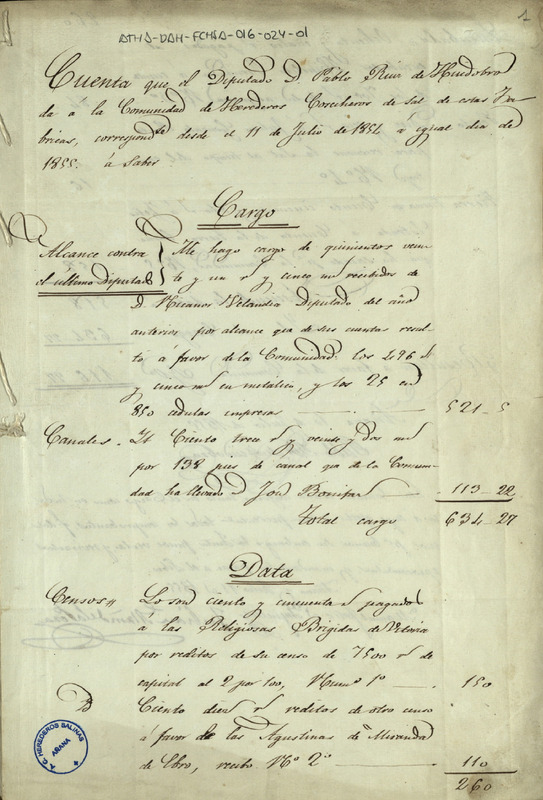 1
ATHA-DAH-FCHSA-016-024-01
Cuenta que el Diputado D. Pablo Ruiz de Huidobro
da á la Comunidad de Herederos Corcheros de sal de estas Fa-
bricas, correspondte desde el 11 de Julio de 1854 á igual dia de
1855. á Saber
Cargo
Alcance contra
el último Diputado
Me hago cargo de quinientos vein
te y un rs y cinco ms recibidos de
D. Nicanor Velandia Diputado del año
anterior por alcance qe de sus cuentas resul-
tó á favor de la Comunidad: los 496 rs
y cinco ms en metálico, y los 25 en
850 cedulas impresas 521-5
Canales. It Ciento trece rs y veinte y dos ms
por 138 pies de canal qe de la Comuni-
dad ha llevado José Bonifaz 113 22
total cargo 634-27
Data
Censos Lo son ciento y cincuenta rs pagados
á las Religiosas Brigidas de Vitoria
por reditos de su censo de 7500 rs de
capital al 2 por 100, Numo 1º 150
Yd Ciento diez rs reditos de otro censo
á favor de las Agustinas de Miranda
de Ebro, recibo Nº 2º 110
260
A.C. HEREDEROS SALINAS
AÑANA